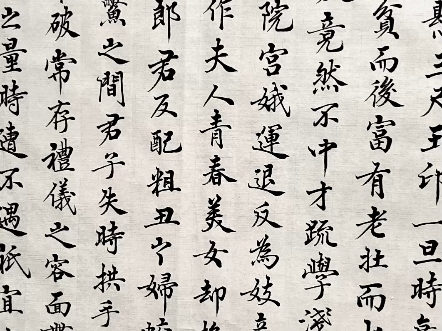 三尺玉印一旦時
貧而後富有老壯而
竟然不中才疏學淺
院宮娥運退反為妓
作夫人青春美女却
郎君反配粗丑之婦
鱉之間君子失時拱手
破常存禮儀之容面
之量時遭不遇祇宜